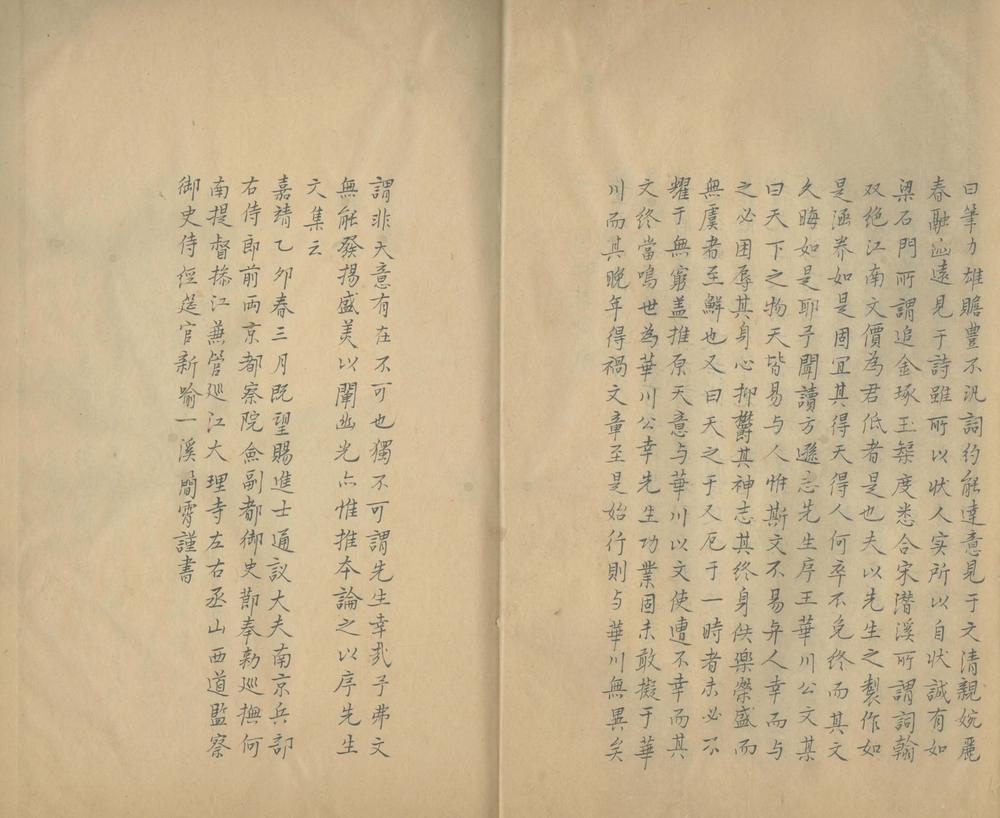 曰筆力雄贍豐不汎詞約能達意見于文清親婉麗
春融幽遠見于詩雖所以状人实所以自状誠有如
梁石門所謂追金琢玉榘度悉合宋潜溪所謂詞翰
双绝江南文價為君低者是也夫以先生之製作如
是涵养如是固宜其得天得人何卒不免终而其文
久晦如是耶予聞讀方遜志先生序王華川公文某
曰天下之物天皆易与人惟斯文不易与人幸而与
之必困辱其身心抑欝其神志其终身佚樂榮盛而
無虞者至鮮也又曰天之于又厄于一時者未必不
耀于無窮盖推原天意与華川以文使遭不幸而其
文终當鳴世為華川公幸先生功業固未敢擬于華
川而其晚年得禍文章至是始行則与華川無異矣
謂非天意有在不可也獨不可謂先生幸㢤予弗文
無能發揚盛美以闡幽光亦惟推本論之以序先生
文集云
嘉靖乙夘春三月既望賜進士通議大夫南京兵部
右侍郎前两京都察院僉副都御史節奉勅巡撫河
南提督撡江兼管巡江大理寺左右丞山西道監察
御史侍經筵官新喻一溪簡霄謹書